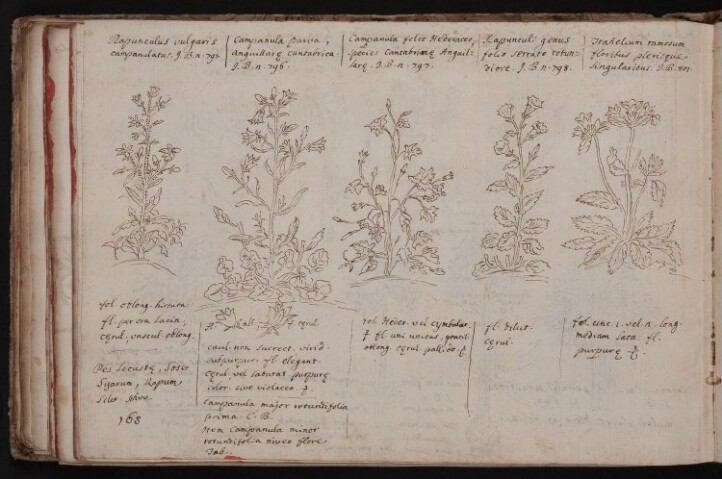 Rapunculus vulgaris
campanulatus. J. B. n. 795
Campanula parva,
Anguillaræ Cantabrica
J. B. n. 796.
Campanula folio Hederaceo,
species Cantabricæ Anguil-
laræ. J. B. n. 797.
Rapunculi genus
folio serrato rotun-
diore. J. B. n. 798.
Trakelium ramosum
floribus plerisque
singularibus. J. B. 801.
fol. oblong. hirsuta
fl. pur
cærul. vascul. oblong.
Pes Locustæ,
Sisarum, Rapum
168
fl. cærul.
caul. non succect. virid.
subpurpur. fl. elegant
cærul. vel saturat purpureæ
color. sive violaceo.
Campanula major rotundifolia
prima. C. B.
Item Campanula minor
rotundifolia niveo flore
Tab.
fol. Heder. vel Cymbalar.
fl. uni
oblong. cærul. pall.
fl. dilut.
cærul.
fol. unc. 1. vel long.
mediam lata. fl.
purpureæ